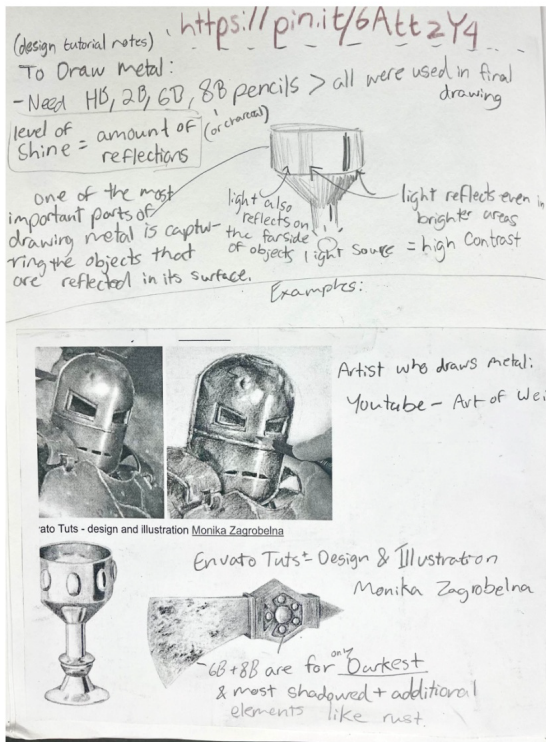 https://pin.it/6AttzY4
(design tutorial notes)
To Draw metal:
- Need HB, 2B, 6B, 8B pencils > all were used in final drawing
(or charcoal)
level of shine = amount of reflections
one of the most
important parts of
drawing metal is captu-
ring the objects that
are reflected in its surface.
light also
reflects on
the farside
of objects
light source
light reflects even in
brighter areas
= high contrast
Examples:
Artist who draws metal:
Youtube - Art of
ato Tuts - design and illustration Monika Zagrobelna
Envato Tuts+ Design & Illustration
Monika Zagrobelna
- 6B + 8B are for only Darkest
& most shadowed + additional
elements like rust.